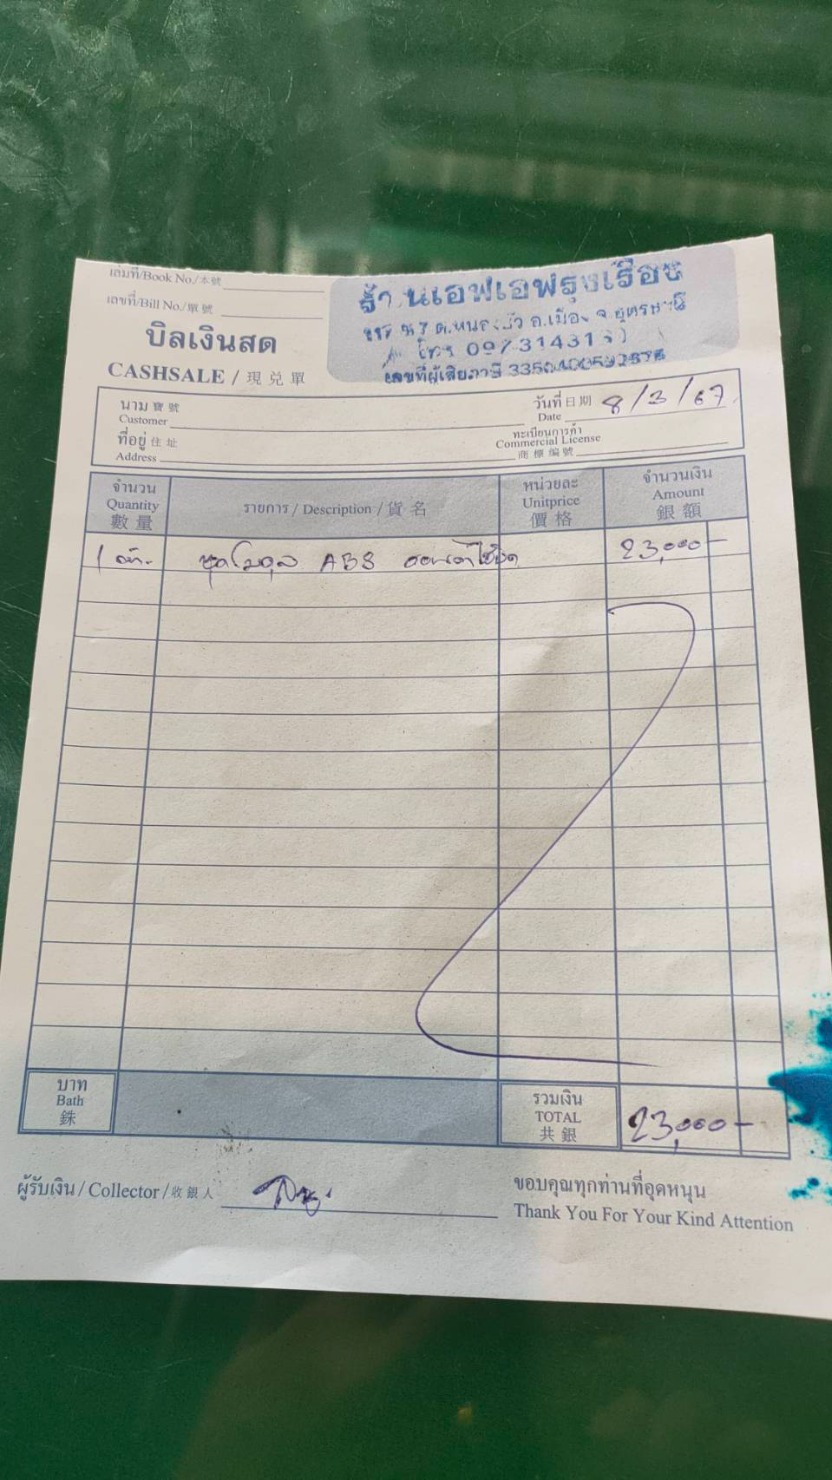 เล่มที่/Book No./本號
เลขที่/Bill No./單號
บิลเงินสด
CASHSALE / 現兑單
ร้านเอฟเอฟรุ่งเรือง
ต.หนองบัว อ.เมือง จ.อุดรธานี
โทร
เลขที่ผู้เสียภาษี
นาม 寶號
Customer
วันที่ 日期 8/3/67
Date
ที่อยู่ 住址
Address
ทะเบียนการค้า
Commercial License
商標編號
จำนวน
Quantity
數量
รายการ / Description / 貨名
หน่วยละ
Unitprice
價格
จำนวนเงิน
Amount
銀額
1 ชุดโมดูล ABS 23,000-
บาท
Bath
銖
รวมเงิน
TOTAL
共銀
23,000-
ผู้รับเงิน / Collector / 收銀人
ขอบคุณทุกท่านที่อุดหนุน
Thank You For Your Kind Attention